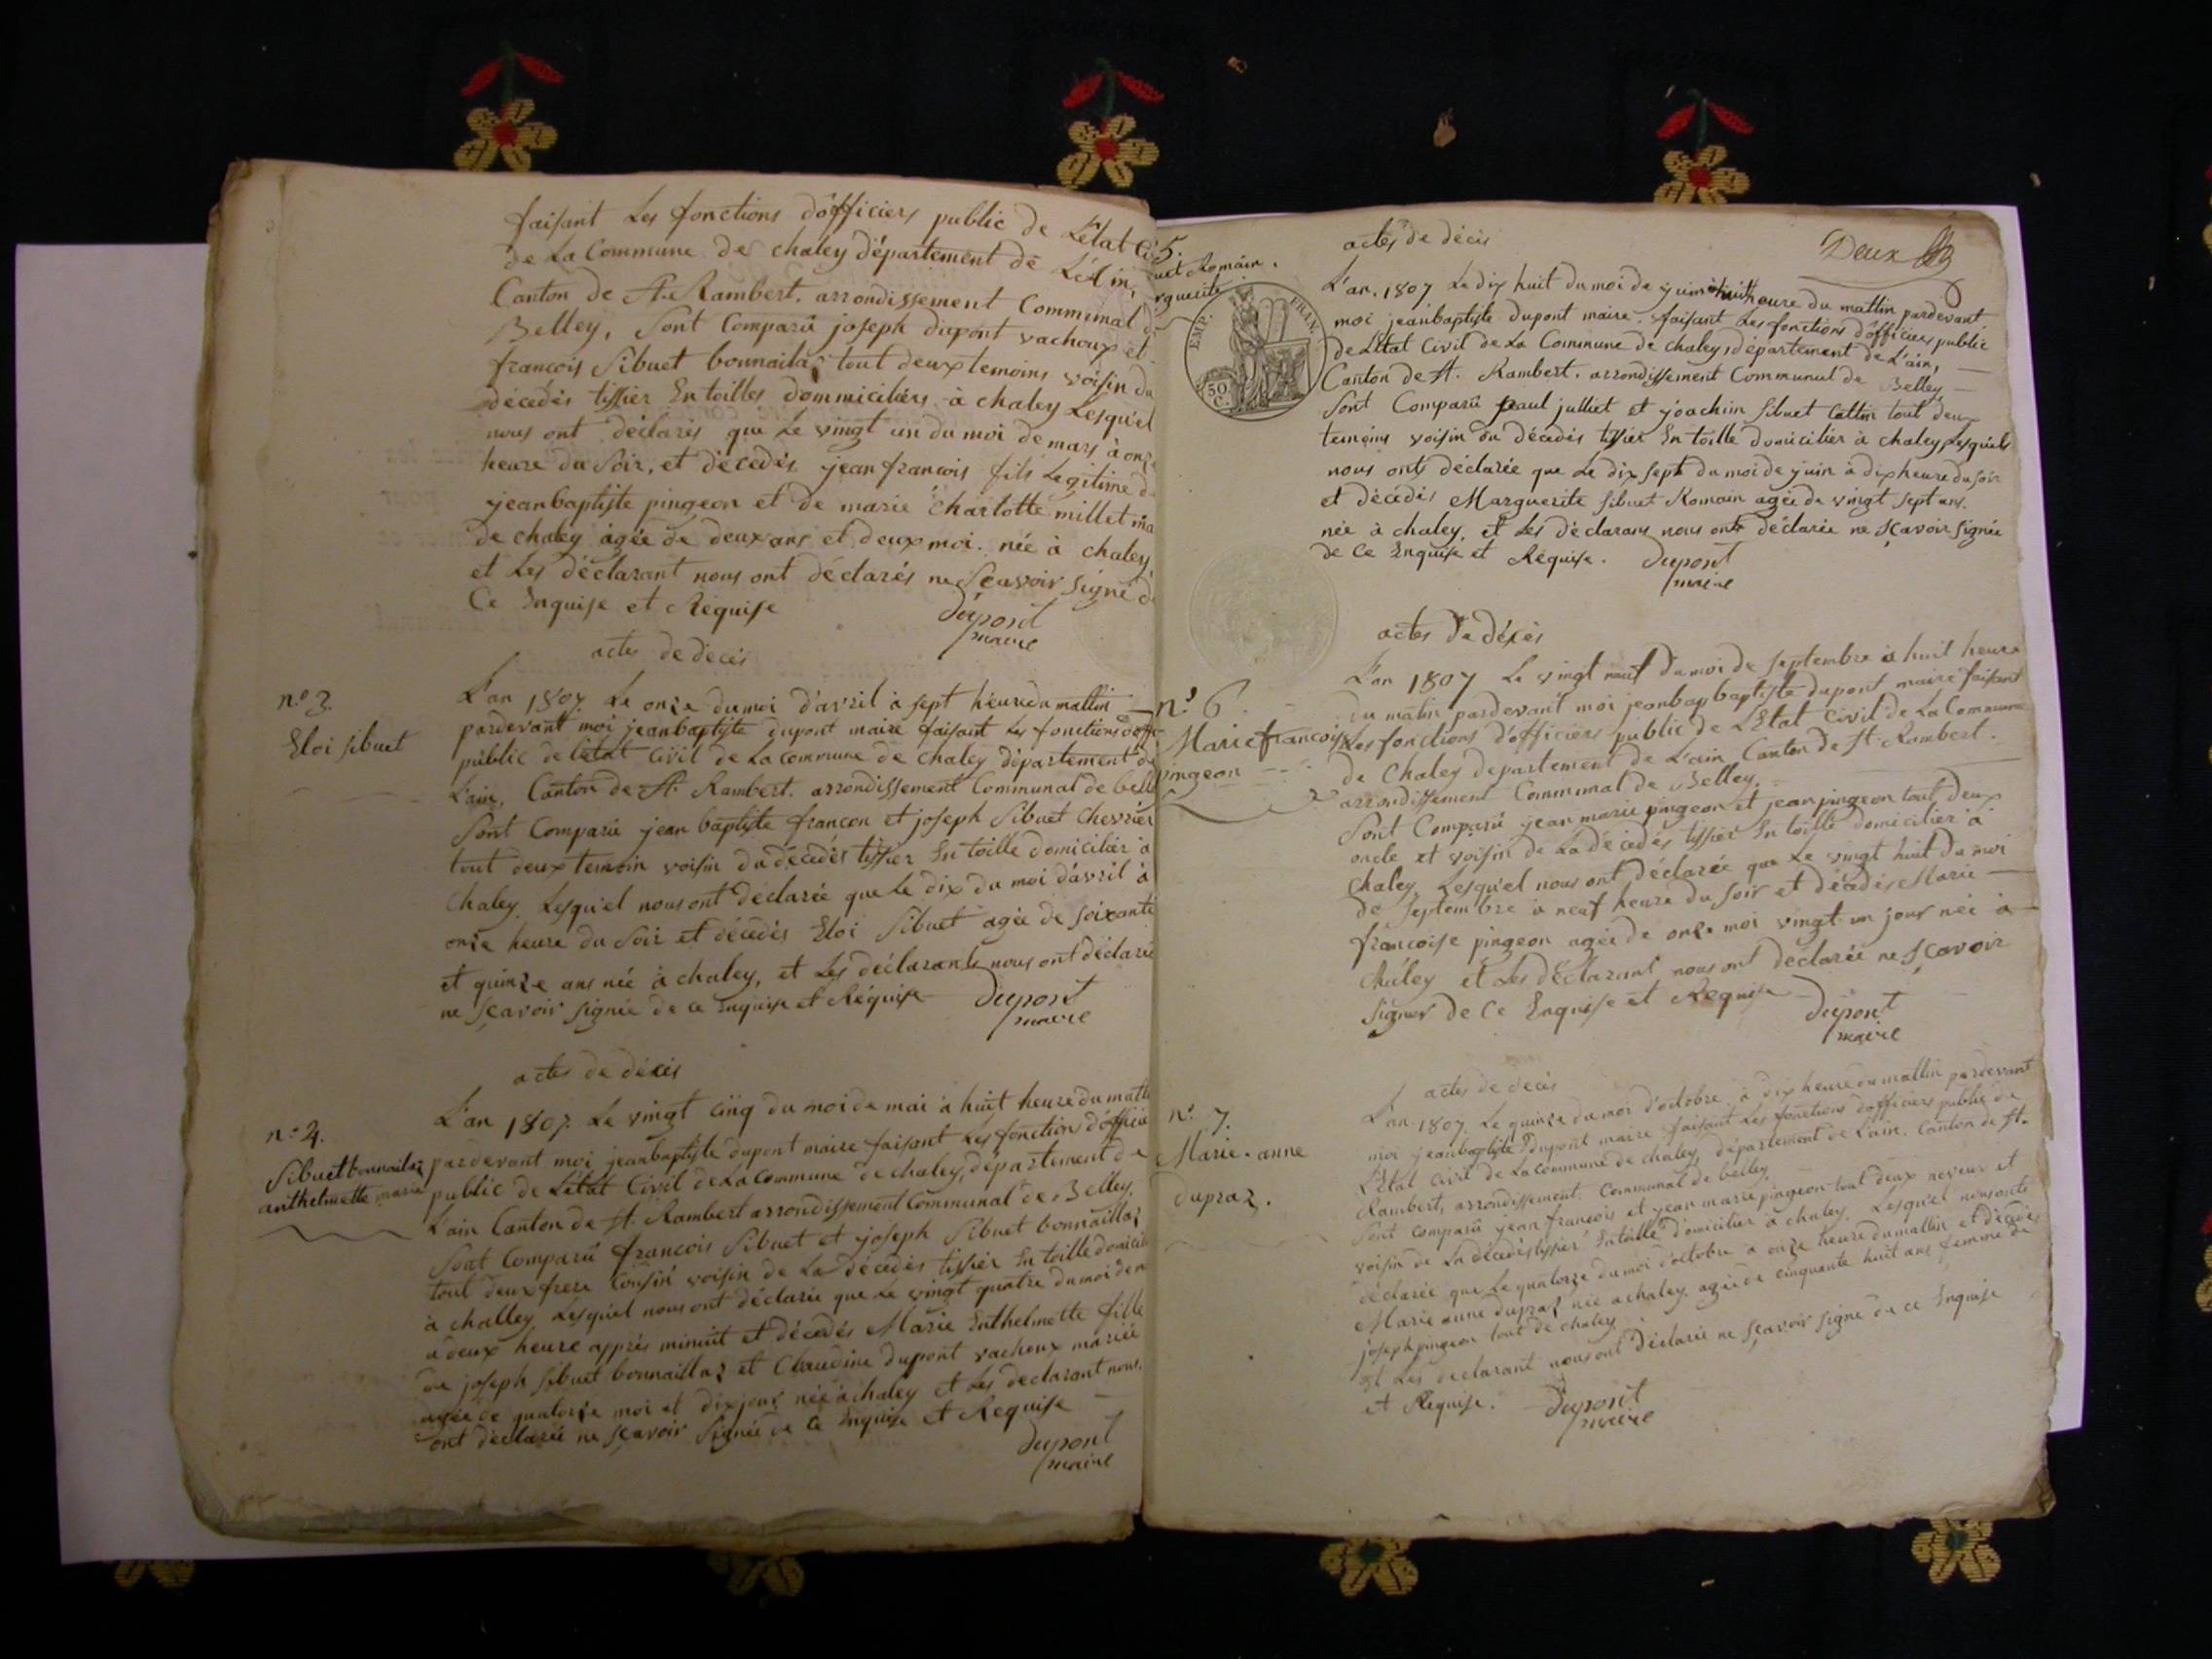 faisant Les fonctions d'officiers public de L'Etat Ci
de La Commune de chaley département de L'Ain,
Canton de St. Rambert. arrondissement Communal d
Belley, Sont Comparû joseph dupont vachoux et
francois Sibuet bonnailaz tout deux temoins voisin du
décedés tissier En toilles dommiciliers à chaley Lesquel
nous ont déclarés que Le vingt un du moi de mars à onze
heure du Soir, et décedés jean francois fils Legitime d
jeanbaptiste pingeon et de marie Charlotte millet ma
de chaley agée de deux ans et deux moi. née à chaley,
et Les déclarant nous ont déclarés ne Scavoir Signé d
Ce Enquise et Réquise
dupont
maire
actes de deces
n.o 3.
Eloi sibuet
L'an 1807. Le onze du moi d'avril à sept heure du mattin
pardevant moi jeanbaptiste dupont maire faisant Les fonctions d'offi
public de L'état civil de La commune de chaley département de
L'ain, Canton de St. Rambert. arrondissement Communal de belle
Sont Comparû jean baptiste francon et joseph Sibuet Chevrier
tout deux temoin voisin du décedés tissier En toille domicilier à
Chaley. Lesquel nous ont déclarée que Le dix du moi d'avril à
onze heure du Soir et décedés Eloi Sibuet agée de soixante
et quinze ans née à chaley, et Les déclarants nous ont déclarée
ne sçavoir signée de ce Enquise et Réquise
dupont
maire
actes de décés
n.o 4.
Sibuet bonnailaz
anthelmette marie
L'an 1807. Le vingt cinq du moi de mai à huit heure du matti
pardevant moi jeanbaptiste dupont maire faisant Les fonctions d'officie
public de L'état Civil de La commune de chaley, département de
L'ain Canton de St. Rambert arrondissement Communal de Belley,
Sont Comparû francois Sibuet et joseph Sibuet bonnaillaz
tout deux frere Cousin voisin de La décedés tissier En toille domicili
à challey Lesquel nous ont déclarée que Le vingt quatre du moi de m
à deux heure apprés minuit et décedés Marie Enthelmette fille
de joseph Sibuet bonnaillaz et Claudine dupont vachoux mariée
agée de quatorze moi et dix jour née à chaley et Les declarant nous
ont declarée ne sçavoir Signée de Ce Enquise et Requise
dupont
maire
5.
uet Romain.
rguerite
EMP. FRAN.
50 C.
actes de décis
Deux
L'an. 1807 Le dix huit du moi de juin à huit heure du mattin pardevant
moi jeanbaptiste dupont maire. faisant Les fonctions d'officiers public
de L'Etat Civil de La Commune de chaley, département de L'ain,
Canton de St. Rambert. arrondissement Communal de Belley
Sont Comparû paul julliet et joachim Sibuet Cattin tout deux
temoins voisin du décedés tissier En toille domicilier à chaley, Lesquels
nous onts déclarée que Le dix sept du moi de juin à dix heure du soir
et décedés Marguerite Sibuet Romain agée de vingt sept ans.
née à chaley, et Les déclarans nous onts déclarée ne sçavoir signée
de Ce Enquise et Réquise.
dupont
maire
actes de décés
n.o 6
Marie francoise
pingeon
L'an 1807 Le vingt neuf du moi de septembre à huit heure
du matin pardevant moi jeanbapbaptiste dupont maire faisant
Les fonctions d'officiers public de L'Etat Civil de La Commune
de Chaley departement de L'ain Canton de St. Rambert.
arrondissement Communal de Belley.
Sont Comparû jean marie pingeon et jean pingeon tout deux
oncle et voisin de La décedés tissier En toille domicilier à
Chaley Lesquel nous ont déclarée que Le vingt huit du moi
de septembre à neuf heure du soir et décedés Marie
francoise pingeon agée de onze moi vingt un jour née à
chaley et Les Déclarant nous ont Declarée ne sçavoir
signer de Ce Enquise et Requise
dupont
maire
actes de decis
n.o 7.
Marie. anne
dupraz.
L'an. 1807. Le quinze du moi d'octobre. à dix heure du mattin pardevant
moi jeanbaptiste Dupont maire faisant Les fonctions d'officiers public de
L'Etat Civil de La commune de chaley, département de L'ain. Canton de St.
Rambert, arrondissement. Communal de belley.
Sont comparû jean francois et jean marie pingeon tout deux neveux et
voisin de La décedés tissier En toille domicilier à chaley. Lesquel nous onts
déclarée que Le quatorze du moi d'octobre à onze heure du mattin et décedés
Marie anne dupraz née à chaley. agée de cinquante huit ans femme de
joseph pingeon tout de chaley
et Les declarant nous ont déclarée ne sçavoir signé de ce Enquise
et Requise.
dupont
maire